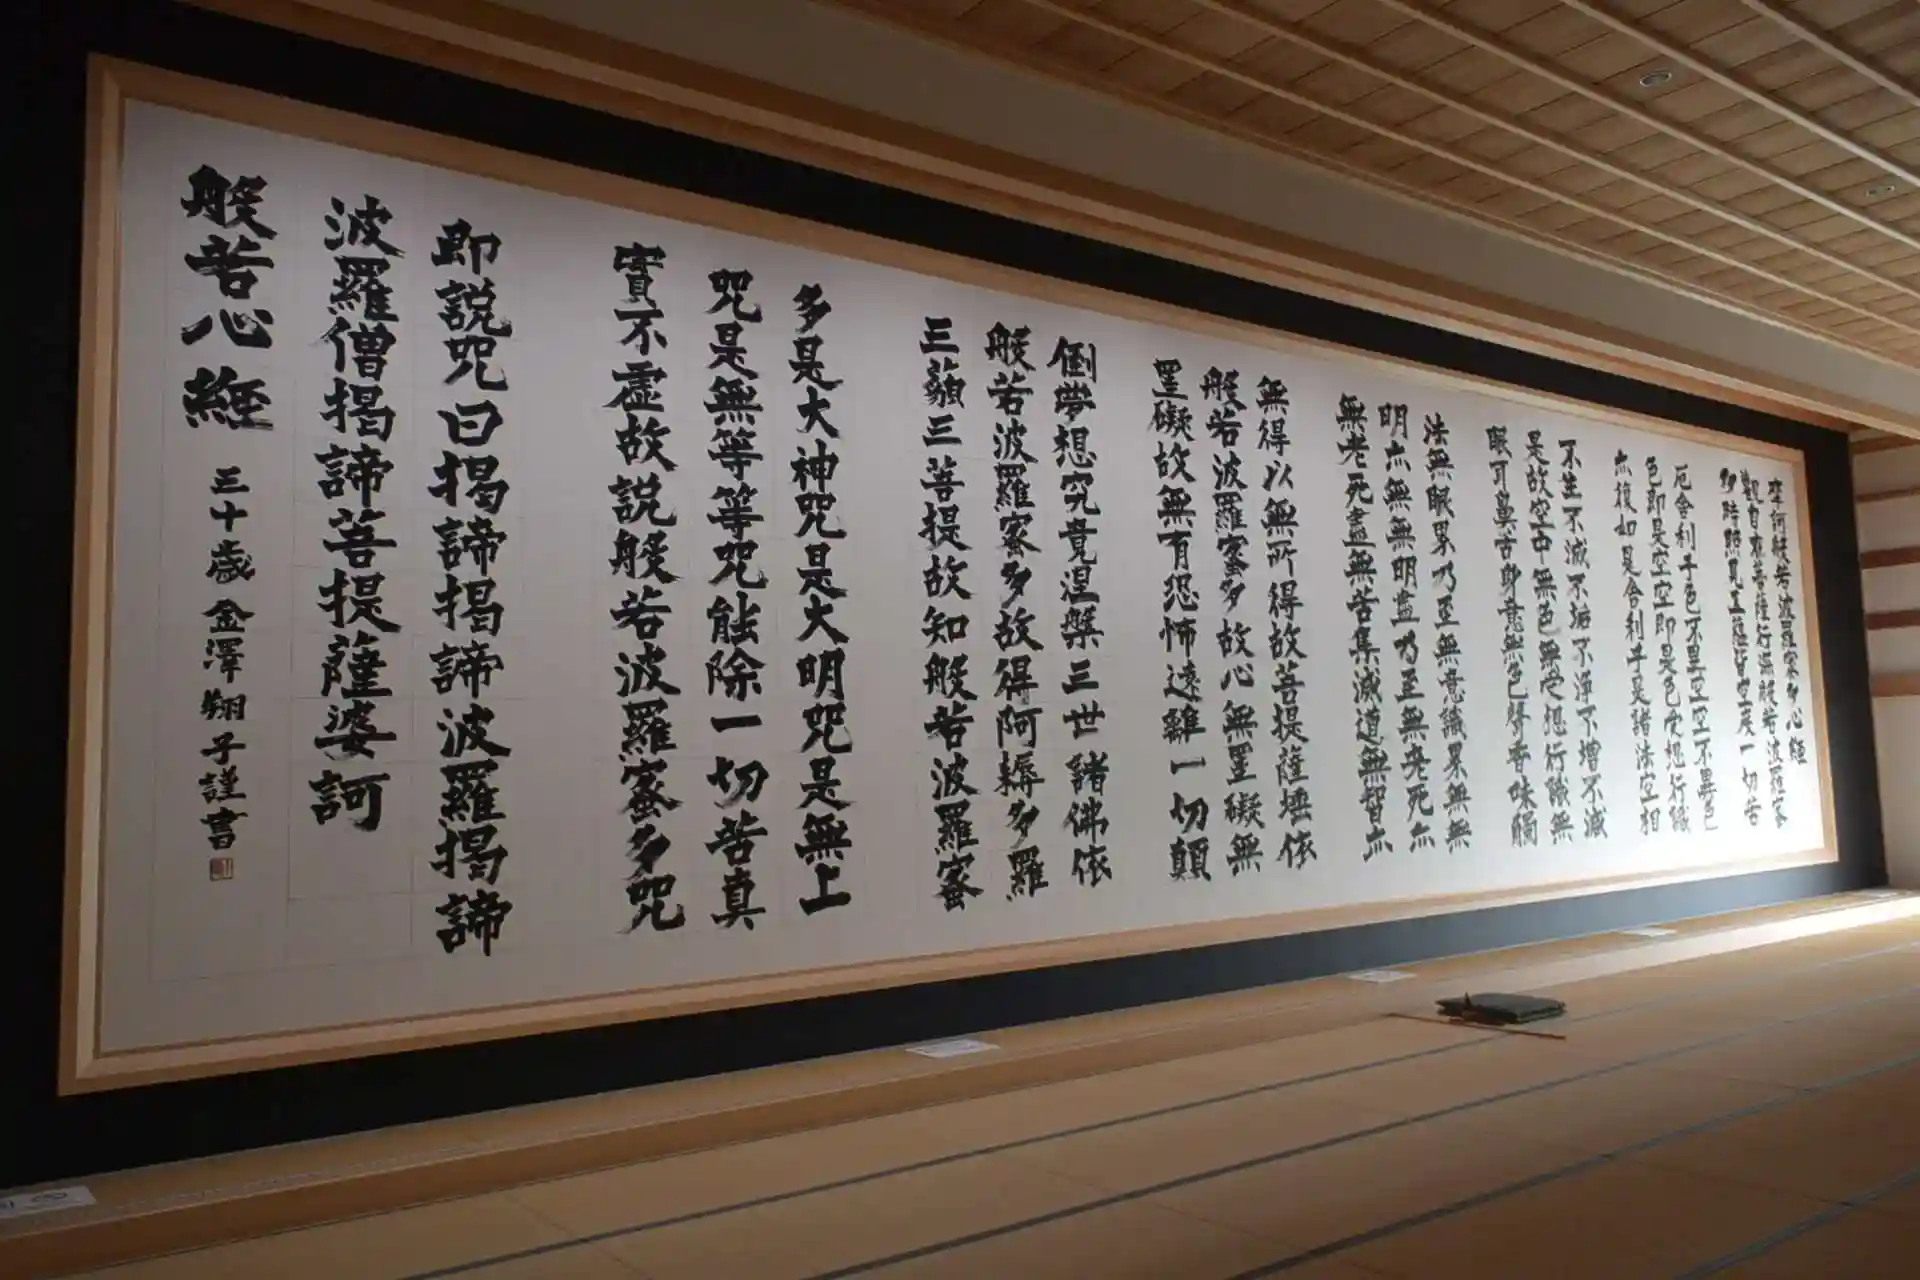 摩訶般若波羅蜜多心経
觀自在菩薩行深般若波羅蜜
多時照見五蘊皆空度一切苦
厄舎利子色不異空空不異色
色即是空空即是色受想行識
亦復如是舎利子是諸法空相
不生不滅不垢不浄不増不減
是故空中無色無受想行識無
眼耳鼻舌身意無色聲香味觸
法無眼界乃至無意識界無無
明亦無無明盡乃至無老死亦
無老死盡無苦集滅道無智亦
無得以無所得故菩提薩埵依
般若波羅蜜多故心無罣礙無
罣礙故無有恐怖遠離一切顛
倒夢想究竟涅槃三世諸佛依
般若波羅蜜多故得阿耨多羅
三藐三菩提故知般若波羅蜜
多是大神咒是大明咒是無上
咒是無等等咒能除一切苦真
實不虚故説般若波羅蜜多咒
即説咒曰揭諦揭諦波羅揭諦
波羅僧揭諦菩提薩婆訶
般若心經 三十歳 金澤翔子謹書